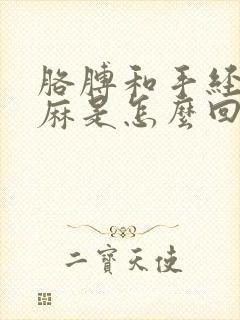 胳膊和手经
麻是怎麼回
二寶天使